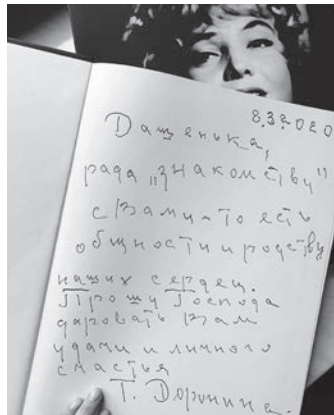 8.3.2020
Дашенька,
рада „знакомству"
с Вами – то есть
общности и родству
наших сердец.
Прошу Господа
даровать Вам
удачи и личного
счастья
Т. Доронина